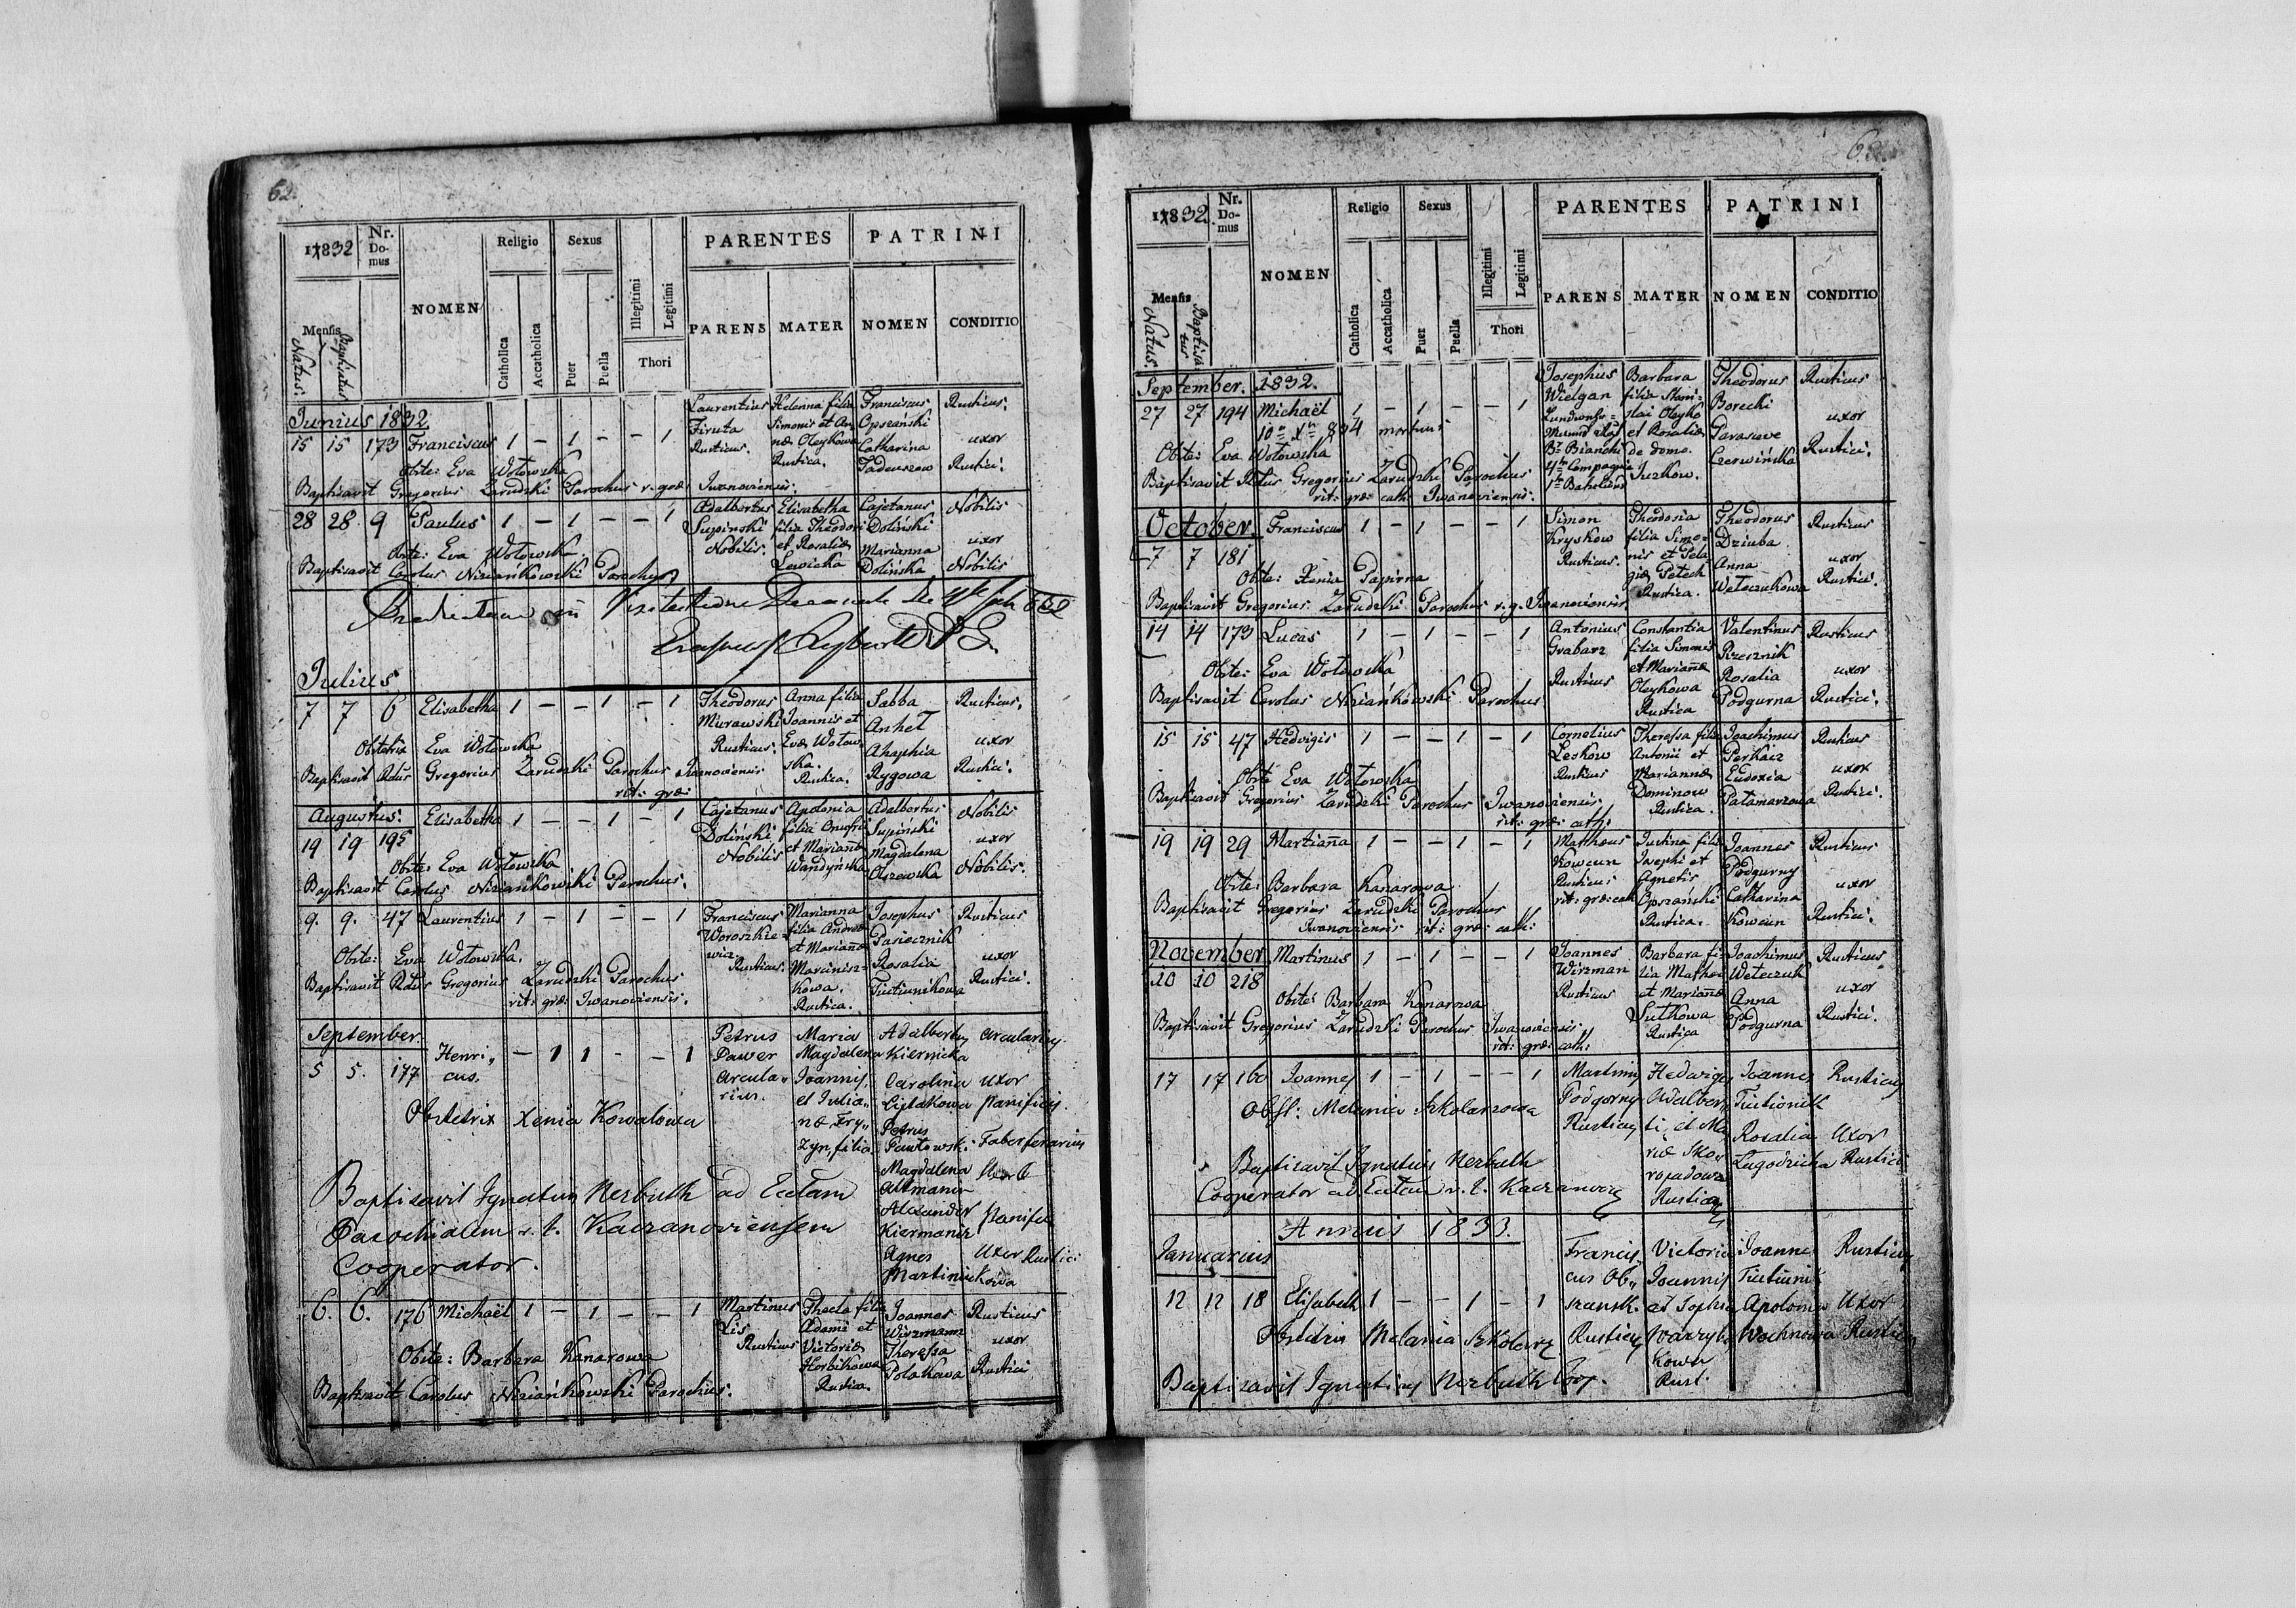 62.
1832 Nr. Domus NOMEN Religio Sexus PARENTES PATRINI
Mensis Natus: Baptisatus Catholica Accatholica Puer Puella Illegitimi Legitimi Thori PARENS MATER NOMEN CONDITIO
Junius 1832
15 15 173 Franciscus 1 – 1 – – 1
Laurentius Firuta Rusticus.
Helenna filia Simonis et Annæ Oleykowa Rustica.
Franciscus Opszański Rusticus.
Catharina Tadeuszow uxor Rustici.
Obste: Eva Wołowska
Baptisavit Gregorius Zarudzki Parochus r. græ: Iwanoviensis.
28 28 9 Paulus 1 – 1 – – 1
Adalbertus Supinski Nobilis.
Elisabetha filia Theodori et Rosaliæ Lewicka
Cajetanus Doliński Nobilis
Marianna Dolińska uxor Nobilis
Obste: Eva Wołowska.
Baptisavit Carolus Niziańkowski Parochus
Julius
7 7 6 Elisabetha 1 – – 1 – 1
Theodorus Murawski Rusticus.
Anna filia Joannis et Evæ Wołowska. Rustica.
Sabba Anhel Rusticus.
Ahaphia Rygowa uxor Rustici.
Obstetrix Eva Wołowska
Baptisavit Rdus Gregorius Zarudzki Parochus Iwanoviensis
rit: græ:
Augustus.
19 19 195 Elisabetha 1 – – 1 – 1
Cajetanus Doliński Nobilis
Apolonia filia Onufri et Mariannæ Wandyńska
Adalbertus Supiński Nobilis
Magdalena Olszewska uxor Nobilis.
Obste: Eva Wołowska
Baptisavit Carolus Niziańkowski Parochus.
9. 9. 47 Laurentius 1 – 1 – – 1
Franciscus Woroszkiewicz Rusticus.
Marianna filia Andreæ et Mariannæ Marciniszkowa. Rustica.
Josephus Pasiecznik Rusticus
Rosalia Tiutiunikowa uxor Rustici.
Obste: Eva Wołowska.
Baptisavit Rdus Gregorius Zarudzki Parochus
rit: græ: Iwanoviensis.
September.
5 5. 177 Henricus. – 1 1 – – 1
Petrus Pawer Arcularius.
Maria Magdalena Joannis et Julianæ Fryzyn filia.
Adalbertus Kiernicka Arcularius.
Carolina uxor panificis.
Petrus Pawłowski Faber ferarius
Magdalena Altmanin
Alexander Kiermanin
Agnes Martiniukowa Uxor Rustici
Obstetrix Xenia Kowalowa
Baptisavit Ignatius Nerbuth ad Ecclam
Parochialem r. l. Kaczanoviensem
Cooperator.
6. 6. 176 Michaël 1 – 1 – – 1
Martinus Lis Rusticus
Thecla filia Adami et Victoriæ Horbikowa Rustica.
Joannes Wirzmann Rusticus
Theressa Polakowa uxor Rustici
Obste: Barbara Kanarowa
Baptisavit Carolus Niziańkowski Parochus.
63.
1832. Nr. Domus NOMEN Religio Sexus PARENTES PATRINI
Mensis Natus. Baptisatus Catholica Accatholica Puer Puella Illegitimi Legitimi Thori PARENS MATER NOMEN CONDITIO
September. 1832.
27 27 194 Michaël 1 – 1 – – 1
mortuus
Josephus Wielgan
Bianchi
4te Compagnie
Barbara filia Stanislai Oleyko et Rosaliæ de domo Juzkow.
Theodorus Borecki Rusticus
Parasceve Czerwińska uxor Rustici.
Obste: Eva Wołowska
Baptisavit Rdus Gregorius Zarudzki Parochus
rit: græ: cath: Iwanoviensis.
October. Franciscus 1 – 1 – – 1
7 7 181
Simon Kryskow Rusticus.
Theodosia filia Simonis et Pelagiæ Petech Rustica.
Theodorus Dziuba Rusticus
Anna Weteczukowa uxor Rustici.
Obste: Xenia Papirna
Baptisavit Gregorius Zarudzki Parochus r. g. Iwanoviensis
14 14 173 Lucas 1 – 1 – – 1
Antonius Grabarz Rusticus
Constantia filia Simonis et Mariannæ Oleykowa Rustica
Valentinus Rzeznik Rusticus
Rosalia Podgurna uxor Rustici.
Obste: Eva Wołowska
Baptisavit Carolus Niziańkowski Parochus
15 15 47 Hedvigis 1 – – 1 – 1
Cornelius Leskow Rusticus
Theressa filia Antonii et Mariannæ Dominow Rustica.
Joachimus Perkacz Rusticus
Eudoxia Patamarzowa uxor Rustici.
Obste Eva Wołowska
Baptisavit Gregorius Zarudzki Parochus Iwanoviensis
rit: græ: cath:
19 19 29 Martianna 1 – – 1 – 1
Matheus Kowcun Rusticus rit: græ: cath
Justina filia Josephi et Agnetis Opszański Rustica.
Joannes Podgurny Rusticus
Catharina Kowcun uxor Rustici.
Obste: Barbara Kanarowa
Baptisavit Gregorius Zarudzki Parochus
Iwanoviensis rit: græ: cath:
November. Martinus 1 – 1 – – 1
10 10 218
Joannes Wirzman Rusticus
Barbara filia Mathei et Mariannæ Sutkowa Rustica
Joachimus Weteczuk Rusticus
Anna Podgurna uxor Rustici.
Obste: Barbara Kanarowa
Baptisavit Gregorius Zarudzki Parochus Iwanoviensis
rit: græ: cath:
17 17 160 Joannes 1 – 1 – – 1
Martinus Podgorny Rusticus
Hedwiges Adalberti, et Mariæ Skoropadowa Rustica
Joannes Tiutionik Rusticus
Rosalia Zagodzicka Uxor Rustici
Obst: Melania Szkolarzowa
Baptisavit Ignatius Nerbuth
Cooperator ad Ecclam r. l. Kaczanov
Annus 1833.
Januarius
12 12 18 Elisabeth 1 – – 1 – 1
Franciscus Obszansk. Rusticus
Victoria Joannis et Sophia Warzybokowa Rust.
Joannes Tiutiunik Rusticus
Apolonia Wochnowa Uxor Rustici
Obstetrix Melania Szkolarz
Baptisavit Ignatius Nerbuth Coop.